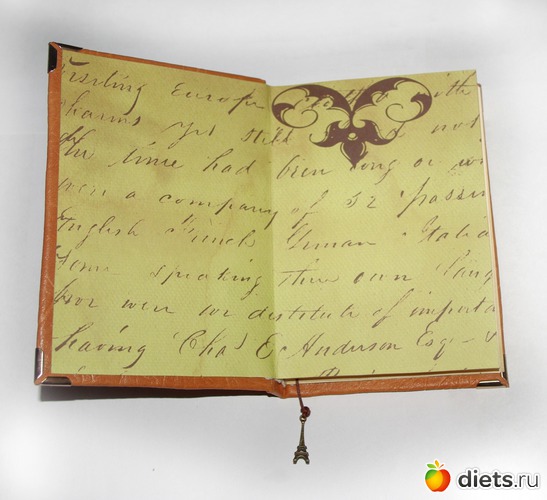 visiting Europe with
charms Yet still not
the time had been long or
were a company of 52 passen
English French German Italia
Some speaking their own lang
nor were we destitute of importa
having Chas E Anderson Esq
diets.ru